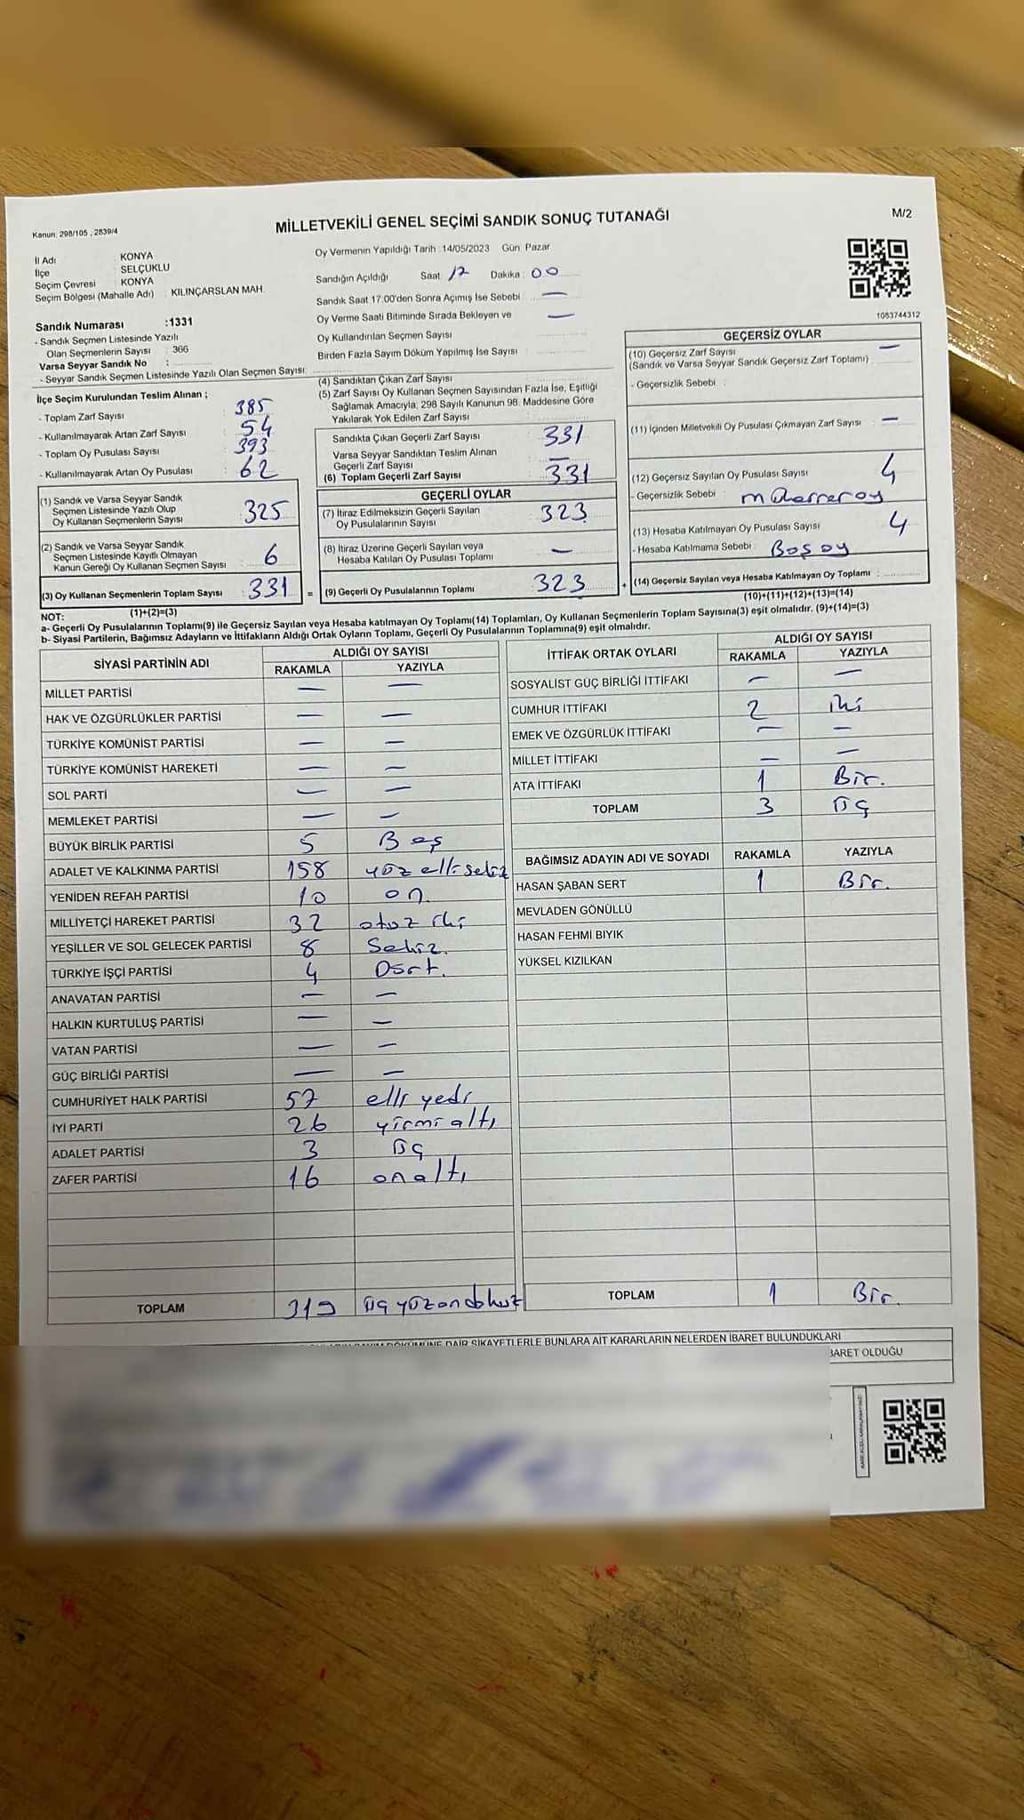 Kanun: 298/105 , 2839/4
MİLLETVEKİLİ GENEL SEÇİMİ SANDIK SONUÇ TUTANAĞI
M/2
İl Adı KONYA
İlçe SELÇUKLU
Seçim Çevresi KONYA
Seçim Bölgesi (Mahalle Adı) : KILINÇARSLAN MAH.
Sandık Numarası :1331
- Sandık Seçmen Listesinde Yazılı
Olan Seçmenlerin Sayısı : 366
Varsa Seyyar Sandık No :
- Seyyar Sandık Seçmen Listesinde Yazılı Olan Seçmen Sayısı:
Oy Vermenin Yapıldığı Tarih :14/05/2023 Gün: Pazar
Sandığın Açıldığı Saat: 17 Dakika : 00
Sandık Saat 17.00'den Sonra Açımış İse Sebebi : —
Oy Verme Saati Bitiminde Sırada Bekleyen ve —
Oy Kullandırılan Seçmen Sayısı
Birden Fazla Sayım Döküm Yapılmış İse Sayısı
1053744312
İlçe Seçim Kurulundan Teslim Alınan ;
- Toplam Zarf Sayısı : 385
- Kullanılmayarak Artan Zarf Sayısı : 54
- Toplam Oy Pusulası Sayısı : 393
- Kullanılmayarak Artan Oy Pusulası : 62
(1) Sandık ve Varsa Seyyar Sandık
Seçmen Listesinde Yazılı Olup
Oy Kullanan Seçmenlerin Sayısı : 325
(2) Sandık ve Varsa Seyyar Sandık
Seçmen Listesinde Kayıtlı Olmayan
Kanun Gereği Oy Kullanan Seçmen Sayısı : 6
(3) Oy Kullanan Seçmenlerin Toplam Sayısı : 331
(1)+(2)=(3)
(4) Sandıktan Çıkan Zarf Sayısı
(5) Zarf Sayısı Oy Kullanan Seçmen Sayısından Fazla İse, Eşitliği
Sağlamak Amacıyla; 298 Sayılı Kanunun 98. Maddesine Göre
Yakılarak Yok Edilen Zarf Sayısı
Sandıkta Çıkan Geçerli Zarf Sayısı : 331
Varsa Seyyar Sandıktan Teslim Alınan
Geçerli Zarf Sayısı : —
(6) Toplam Geçerli Zarf Sayısı : 331
GEÇERLİ OYLAR
(7) İtiraz Edilmeksizin Geçerli Sayılan
Oy Pusulalarının Sayısı : 323
(8) İtiraz Üzerine Geçerli Sayılan veya
Hesaba Katılan Oy Pusulası Toplamı : —
= (9) Geçerli Oy Pusulalarının Toplamı : 323
GEÇERSİZ OYLAR
(10) Geçersiz Zarf Sayısı —
(Sandık ve Varsa Seyyar Sandık Geçersiz Zarf Toplamı)
- Geçersizlik Sebebi :
(11) İçinden Milletvekili Oy Pusulası Çıkmayan Zarf Sayısı : —
(12) Geçersiz Sayılan Oy Pusulası Sayısı : 4
- Geçersizlik Sebebi :
(13) Hesaba Katılmayan Oy Pusulası Sayısı : 4
- Hesaba Katılmama Sebebi : Boş oy
+ (14) Geçersiz Sayılan veya Hesaba Katılmayan Oy Toplamı :
(10)+(11)+(12)+(13)=(14)
NOT:
a- Geçerli Oy Pusulalarının Toplam(9) ile Geçersiz Sayılan veya Hesaba katılmayan Oy Toplamı(14) Toplamları, Oy Kullanan Seçmenlerin Toplam Sayısına(3) eşit olmalıdır. (9)+(14)=(3)
b- Siyasi Partilerin, Bağımsız Adayların ve İttifakların Aldığı Ortak Oyların Toplamı, Geçerli Oy Pusulalarının Toplamına(9) eşit olmalıdır.
SİYASİ PARTİNİN ADI ALDIĞI OY SAYISI
RAKAMLA YAZIYLA
MİLLET PARTİSİ — —
HAK VE ÖZGÜRLÜKLER PARTİSİ — —
TÜRKİYE KOMÜNİST PARTİSİ — —
TÜRKİYE KOMÜNİST HAREKETİ — —
SOL PARTİ — —
MEMLEKET PARTİSİ — —
BÜYÜK BİRLİK PARTİSİ 5 Beş
ADALET VE KALKINMA PARTİSİ 158 yüz elli sekiz
YENİDEN REFAH PARTİSİ 10 on
MİLLİYETÇİ HAREKET PARTİSİ 32 otuz iki
YEŞİLLER VE SOL GELECEK PARTİSİ 8 Sekiz.
TÜRKİYE İŞÇİ PARTİSİ 4 Dört.
ANAVATAN PARTİSİ — —
HALKIN KURTULUŞ PARTİSİ — —
VATAN PARTİSİ — —
GÜÇ BİRLİĞİ PARTİSİ — —
CUMHURİYET HALK PARTİSİ 57 elli yedi
İYİ PARTİ 26 yirmi altı
ADALET PARTİSİ 3 üç
ZAFER PARTİSİ 16 on altı
TOPLAM 319 üç yüz on dokuz
İTTİFAK ORTAK OYLARI ALDIĞI OY SAYISI
RAKAMLA YAZIYLA
SOSYALİST GÜÇ BİRLİĞİ İTTİFAKI — —
CUMHUR İTTİFAKI 2 iki
EMEK VE ÖZGÜRLÜK İTTİFAKI — —
MİLLET İTTİFAKI — —
ATA İTTİFAKI 1 Bir.
TOPLAM 3 üç
BAĞIMSIZ ADAYIN ADI VE SOYADI RAKAMLA YAZIYLA
HASAN ŞABAN SERT 1 Bir.
MEVLADEN GÖNÜLLÜ
HASAN FEHMİ BIYIK
YÜKSEL KIZILKAN
TOPLAM 1 Bir.
DÖKÜMÜNE DAİR ŞİKAYETLERLE BUNLARA AİT KARARLARIN NELERDEN İBARET BULUNDUKLARI
BARET OLDUĞU